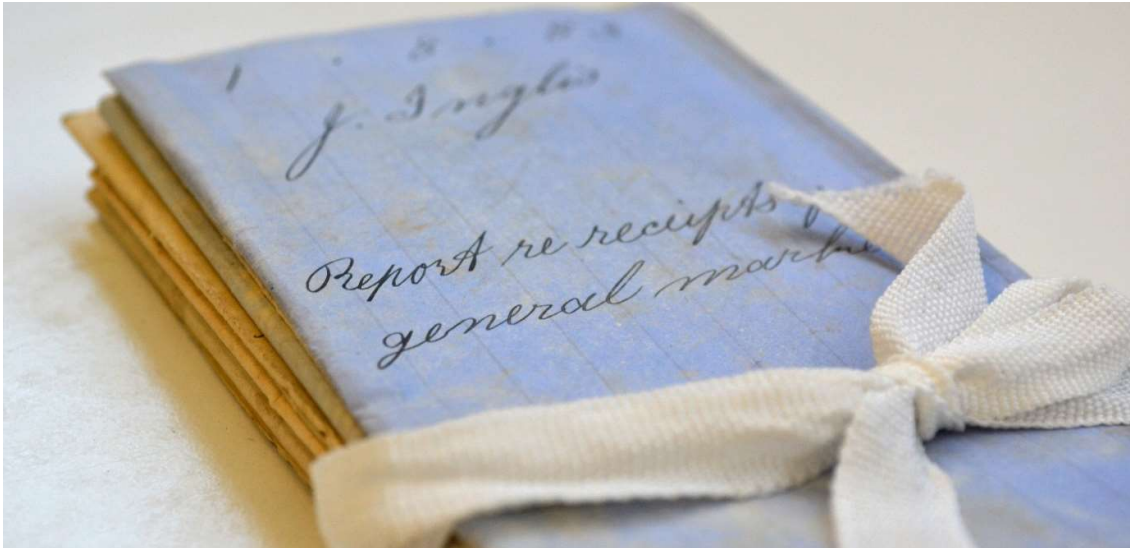 1 . 8 . 83
J. Inglis
Report re receipts
general